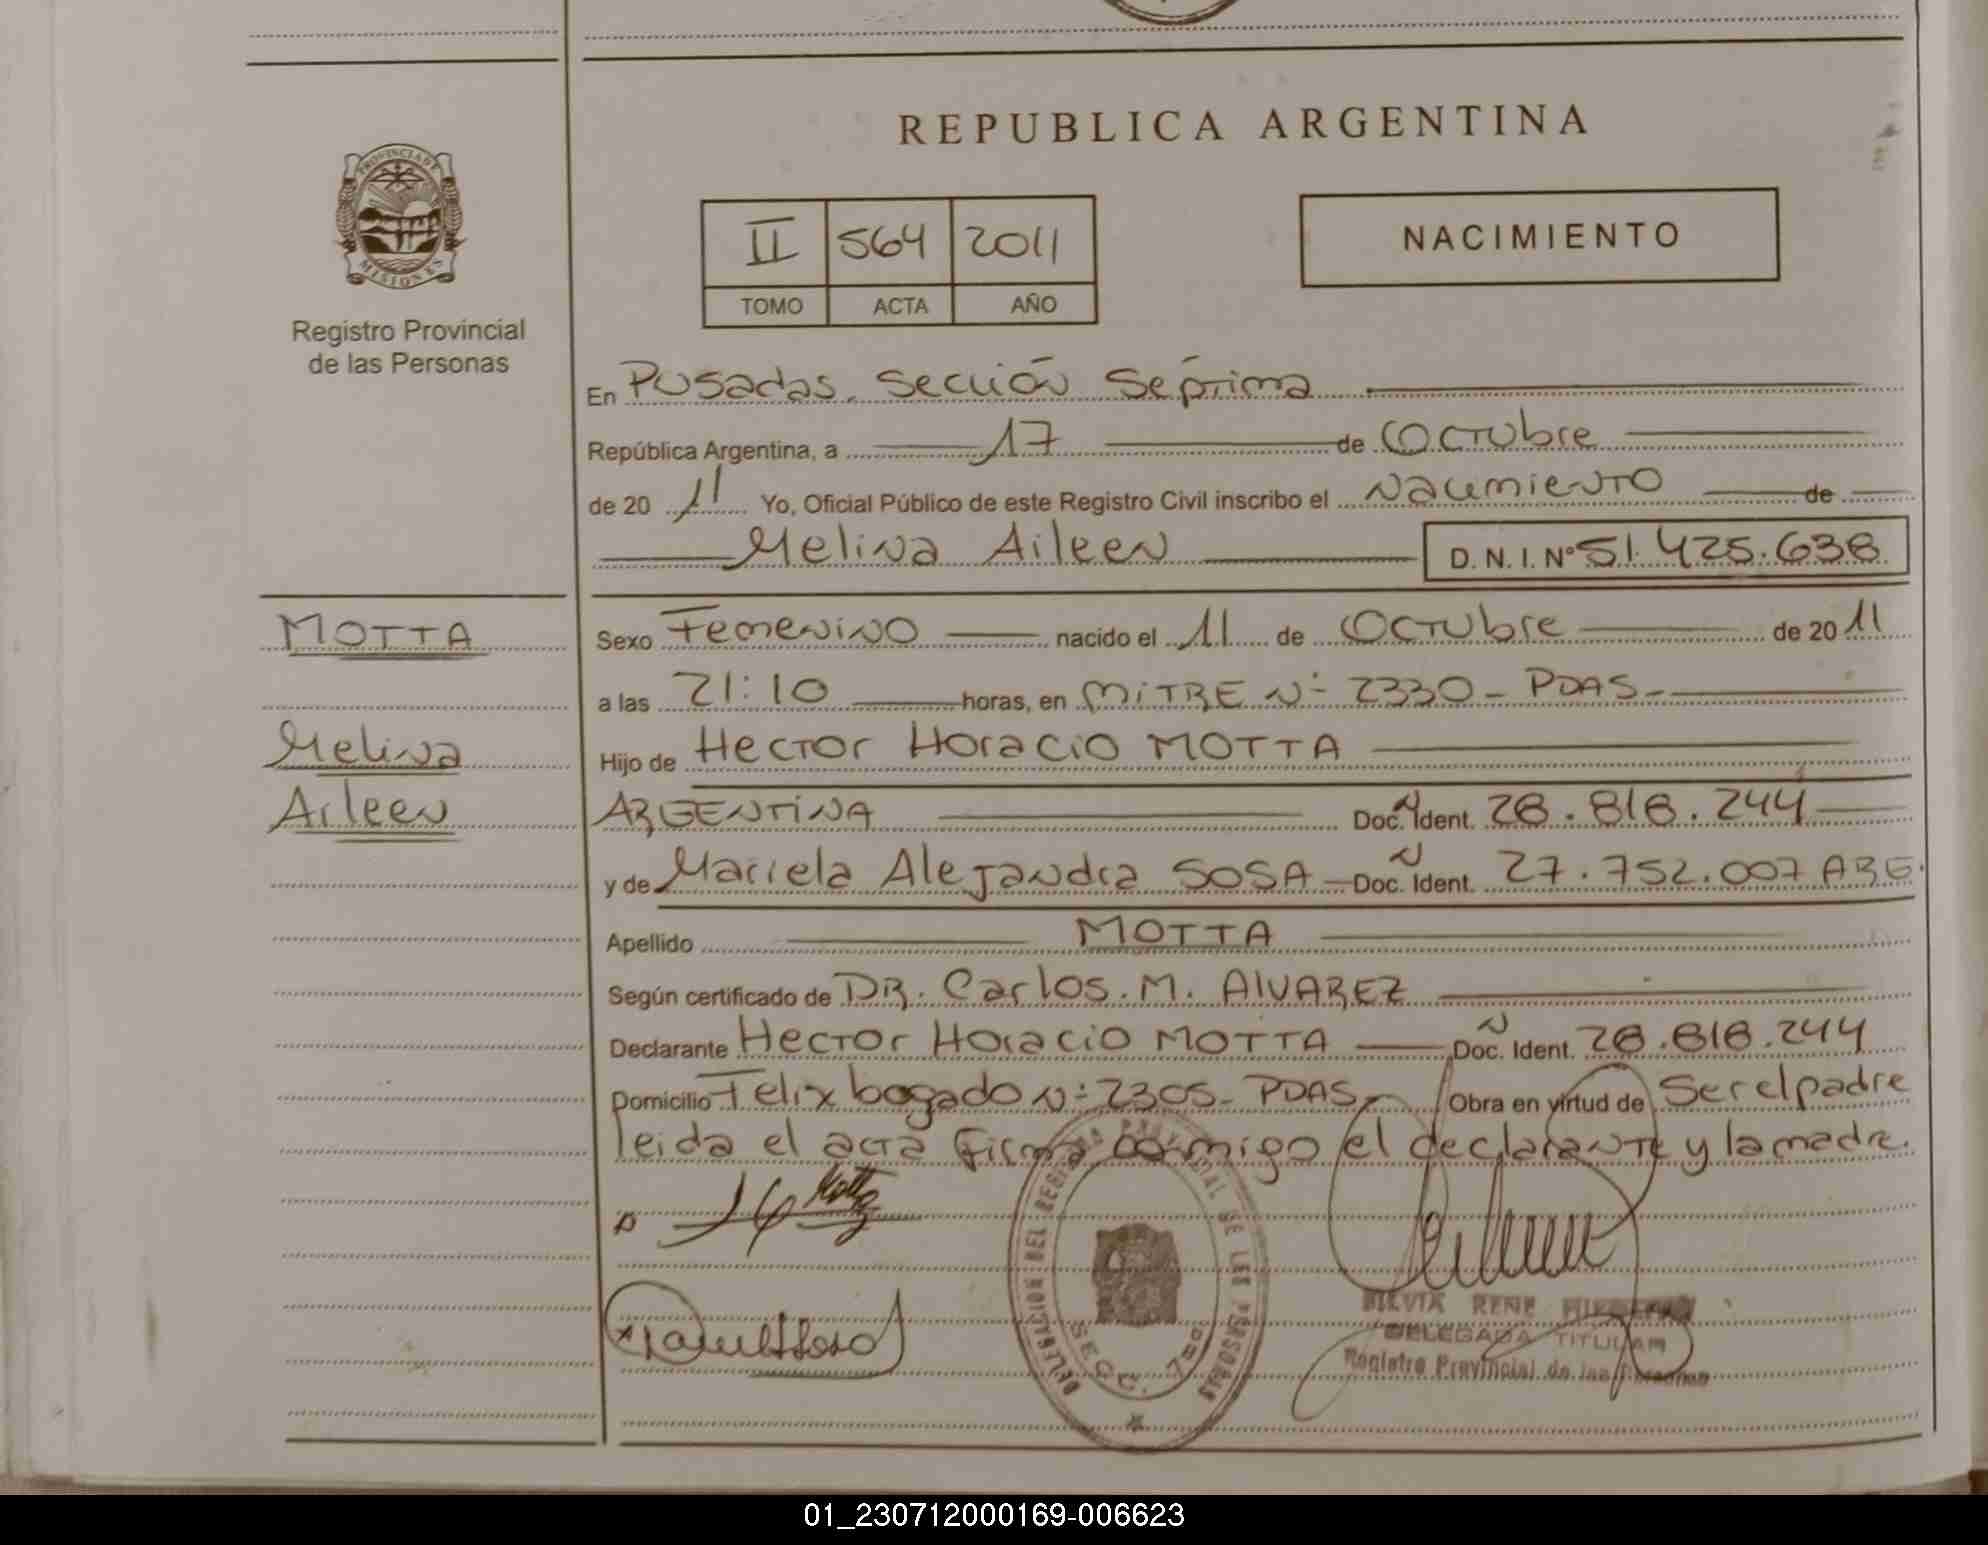 REPUBLICA ARGENTINA
PROVINCIA DE
MISIONES
Registro Provincial
de las Personas
II 564 2011
TOMO ACTA AÑO
NACIMIENTO
En Posadas, Sección Séptima
República Argentina, a 17 de Octubre
de 20 11 Yo, Oficial Público de este Registro Civil inscribo el Nacimiento de
Melina Aileen D. N. I. Nº 51.425.638
MOTTA
Melina
Aileen
Sexo Femenino nacido el 11 de Octubre de 20 11
a las 21:10 horas, en MITRE Nº 2330 - PDAS -
Hijo de Hector Horacio MOTTA
ARGENTINA Doc. N Ident. 28.818.244
y de Mariela Alejandra SOSA Doc. N Ident. 27.752.007 ARG.
Apellido MOTTA
Según certificado de DR. Carlos. M. ALVAREZ
Declarante Hector Horacio MOTTA Doc. N Ident. 28.818.244
Domicilio Felix bogado Nº 2305 - PDAS - Obra en virtud de Ser el padre
leida el acta firma conmigo el declarante y la madre.
Motta
DELEGACION DEL REGISTRO PROVINCIAL DE LAS PERSONAS
SECC. 7ma
SILVIA RENE
DELEGADA TITULAR
Registro Provincial de las Personas
01_230712000169-006623